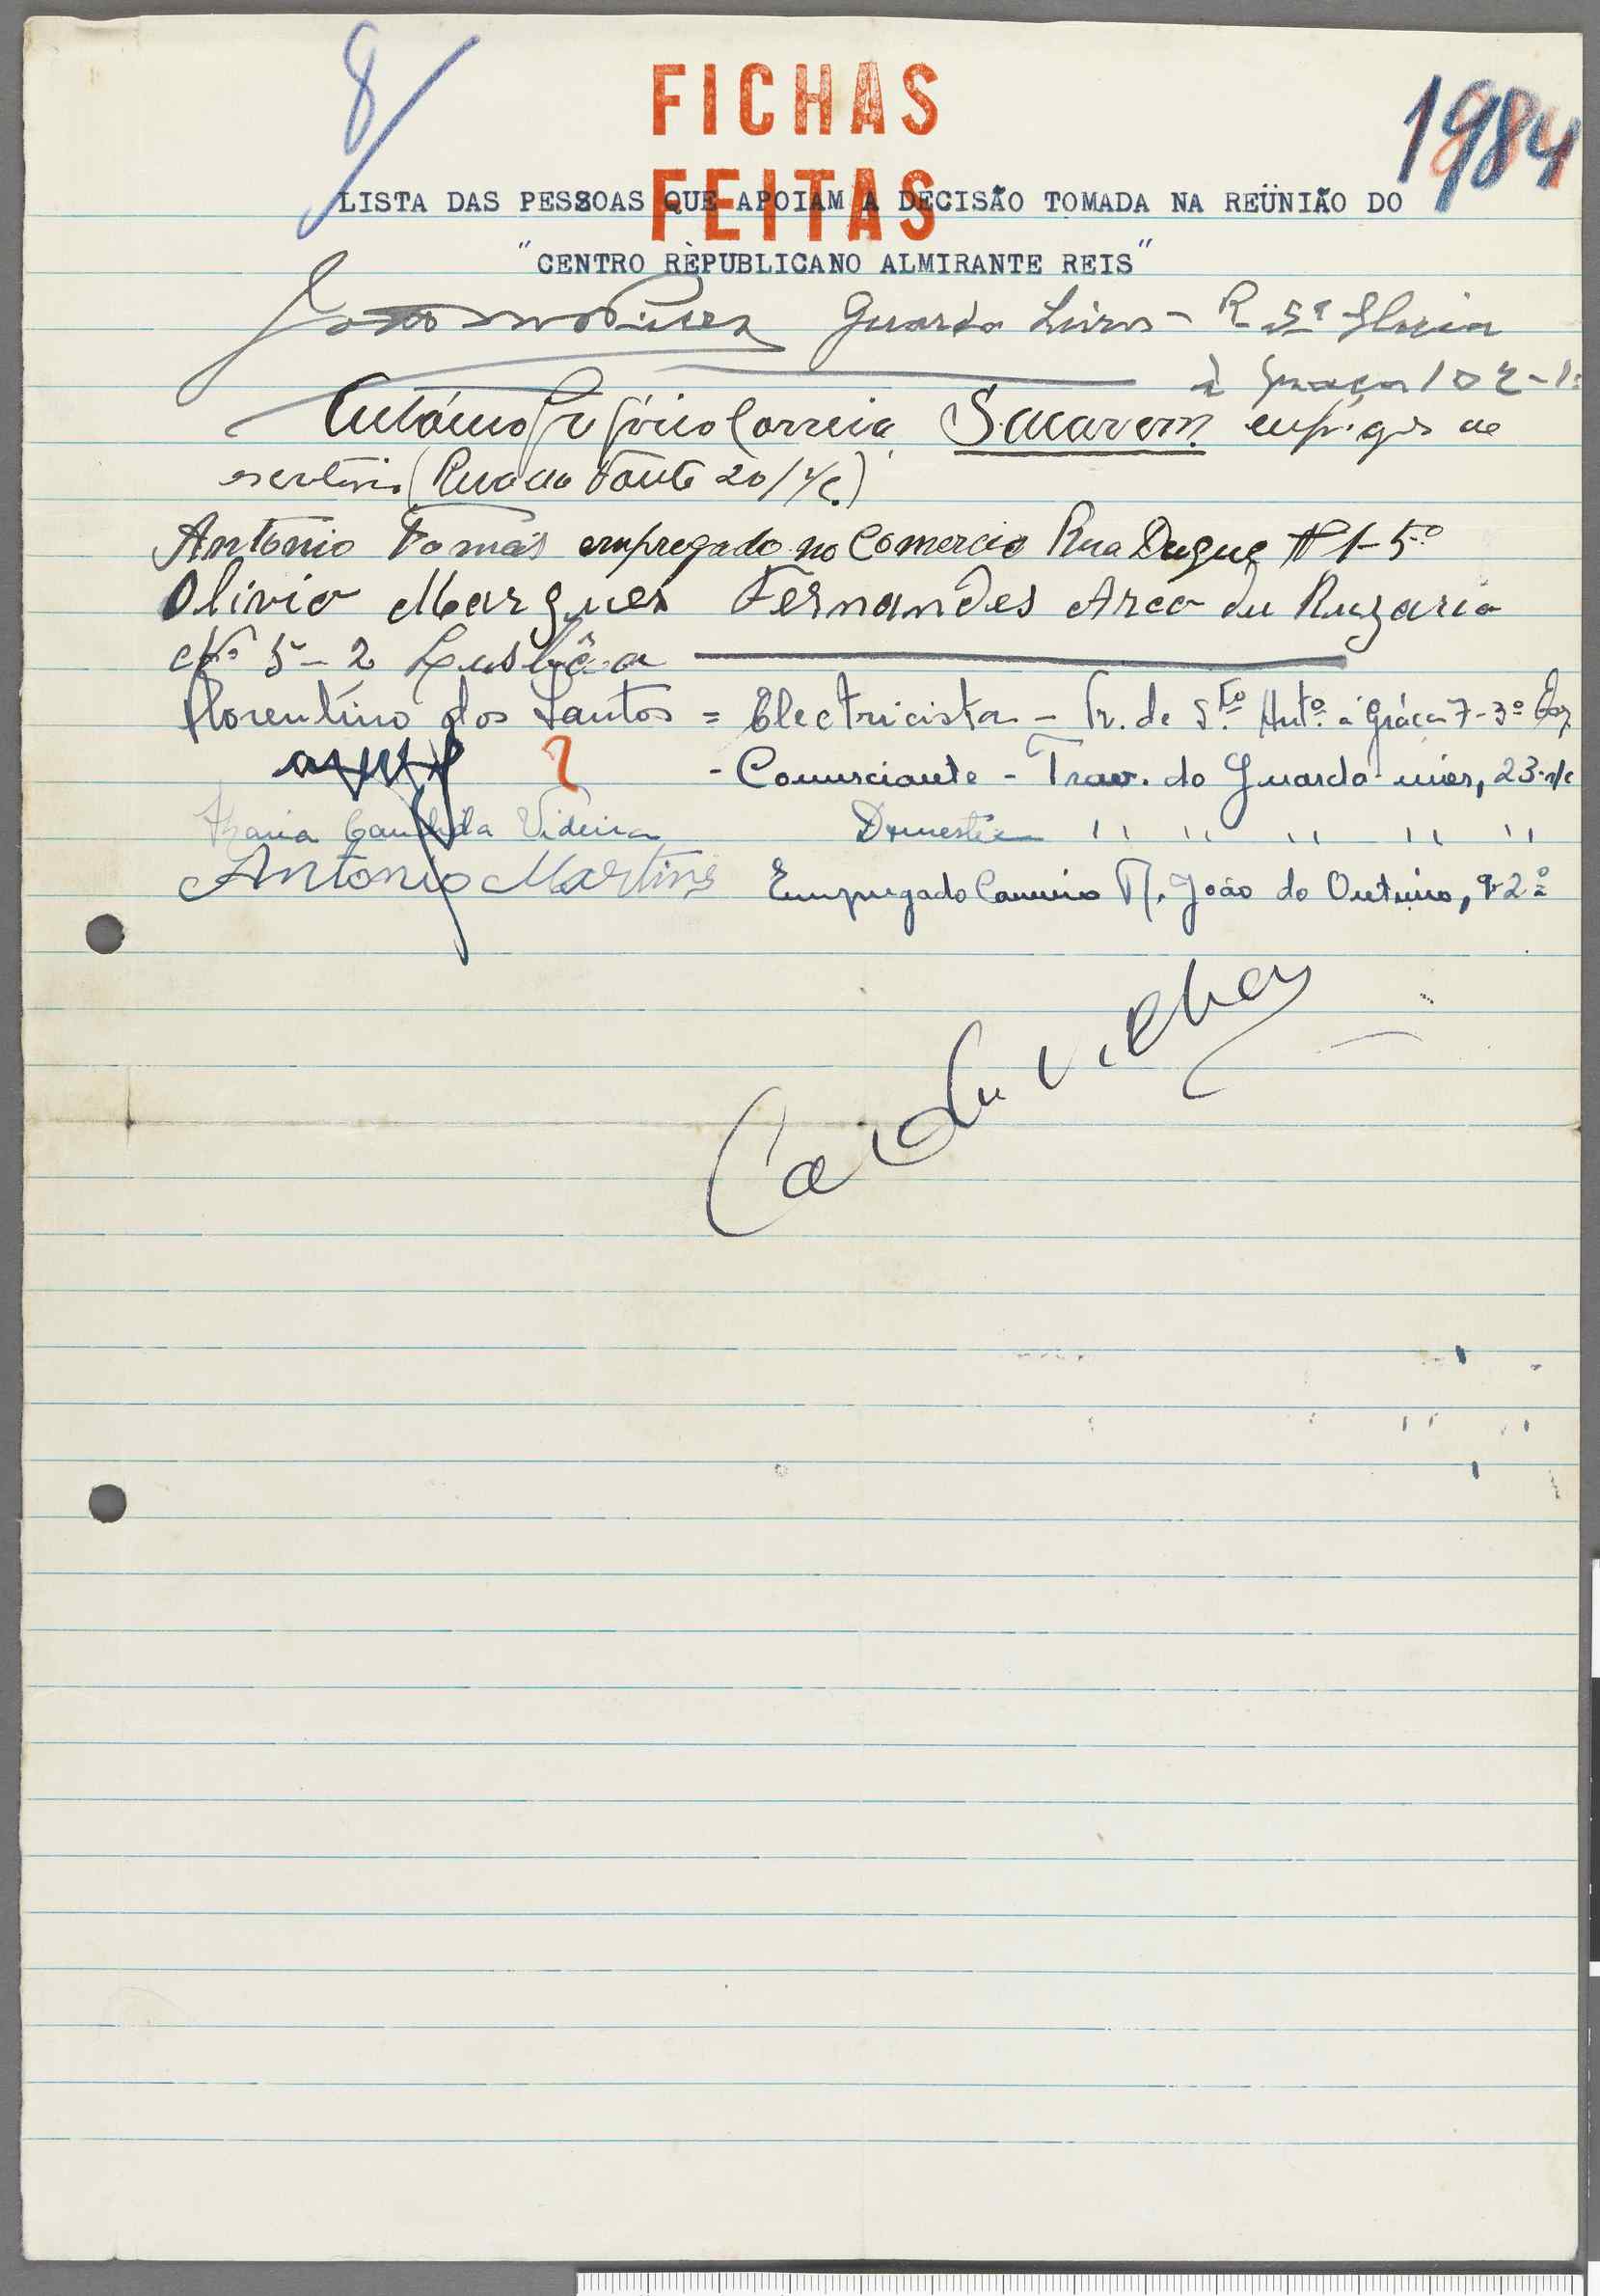 8
FICHAS
1984
FEITAS
LISTA DAS PESSOAS QUE APOIAM A DECISÃO TOMADA NA REÜNIÃO DO
"CENTRO RÈPUBLICANO ALMIRANTE REIS"
Guarda Livros - R. Sª Gloria
à Graça 102-1º
António Correia, Sacavem. de
escritório (Rua da Fonte 20 r/c.)
Antonio Tomás empregado no Comercio Rua Duque Nº 1-5º
Olivio Marques Fernandes Arco du Ruzario
Nº 5-2 Lusbôa
Florentino dos Santos = Electricista - Tr. de Stº Antº à Graça 7-3º Esq
? - Comerciante - Trav. do Guarda-mór, 23-r/c
Maria Candida Videira Domestica " " " " "
Antonio Martins Empregado R. João do Outeiro, 9-2º